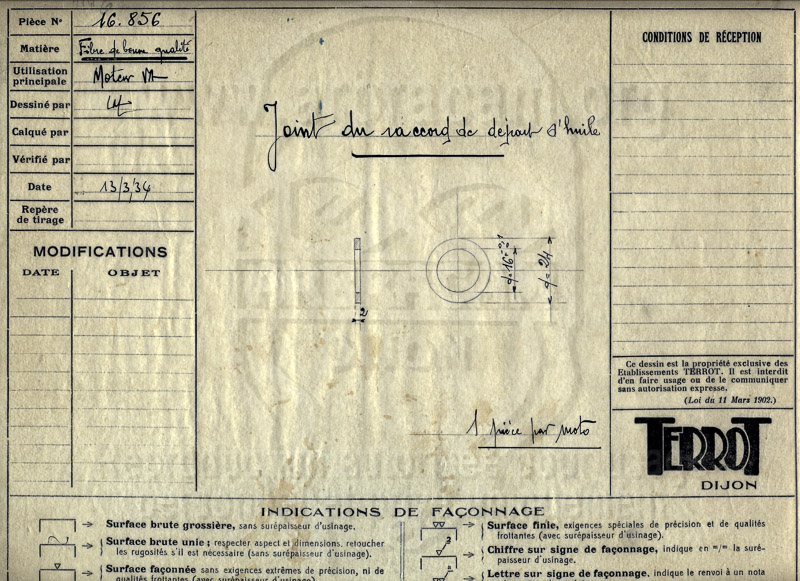 Pièce N° 16.856
Matière Fibre de bonne qualité
Utilisation principale Moteur VA
Dessiné par
Calqué par
Vérifié par
Date 13/3/34
Repère de tirage
MODIFICATIONS
DATE OBJET
Joint du raccord de départ d'huile
2
d=16
d=24
1 pièce par moto
CONDITIONS DE RÉCEPTION
Ce dessin est la propriété exclusive des
Etablissements TERROT. Il est interdit
d'en faire usage ou de le communiquer
sans autorisation expresse.
(Loi du 11 Mars 1902.)
TERROT
DIJON
INDICATIONS DE FAÇONNAGE
Surface brute grossière, sans surépaisseur d'usinage.
Surface brute unie ; respecter aspect et dimensions, retoucher
les rugosités s'il est nécessaire (sans surépaisseur d'usinage).
Surface façonnée sans exigences extrêmes de précision, ni de
qualités frottantes (avec surépaisseur d'usinage).
Surface finie, exigences spéciales de précision et de qualités
frottantes (avec surépaisseur d'usinage).
Chiffre sur signe de façonnage, indique en m/m la suré-
paisseur d'usinage.
Lettre sur signe de façonnage, indique le renvoi à un nota